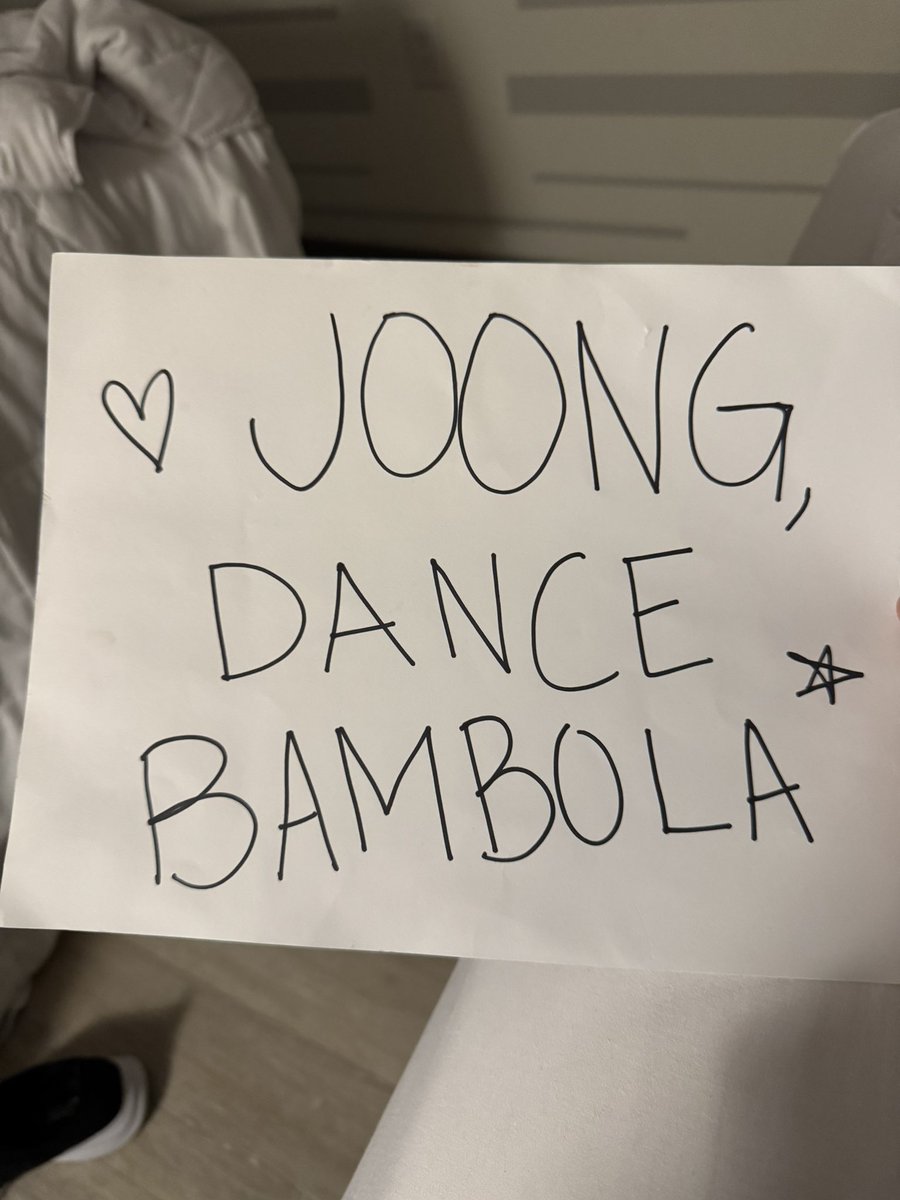 JOONG,
DANCE
BAMBOLA